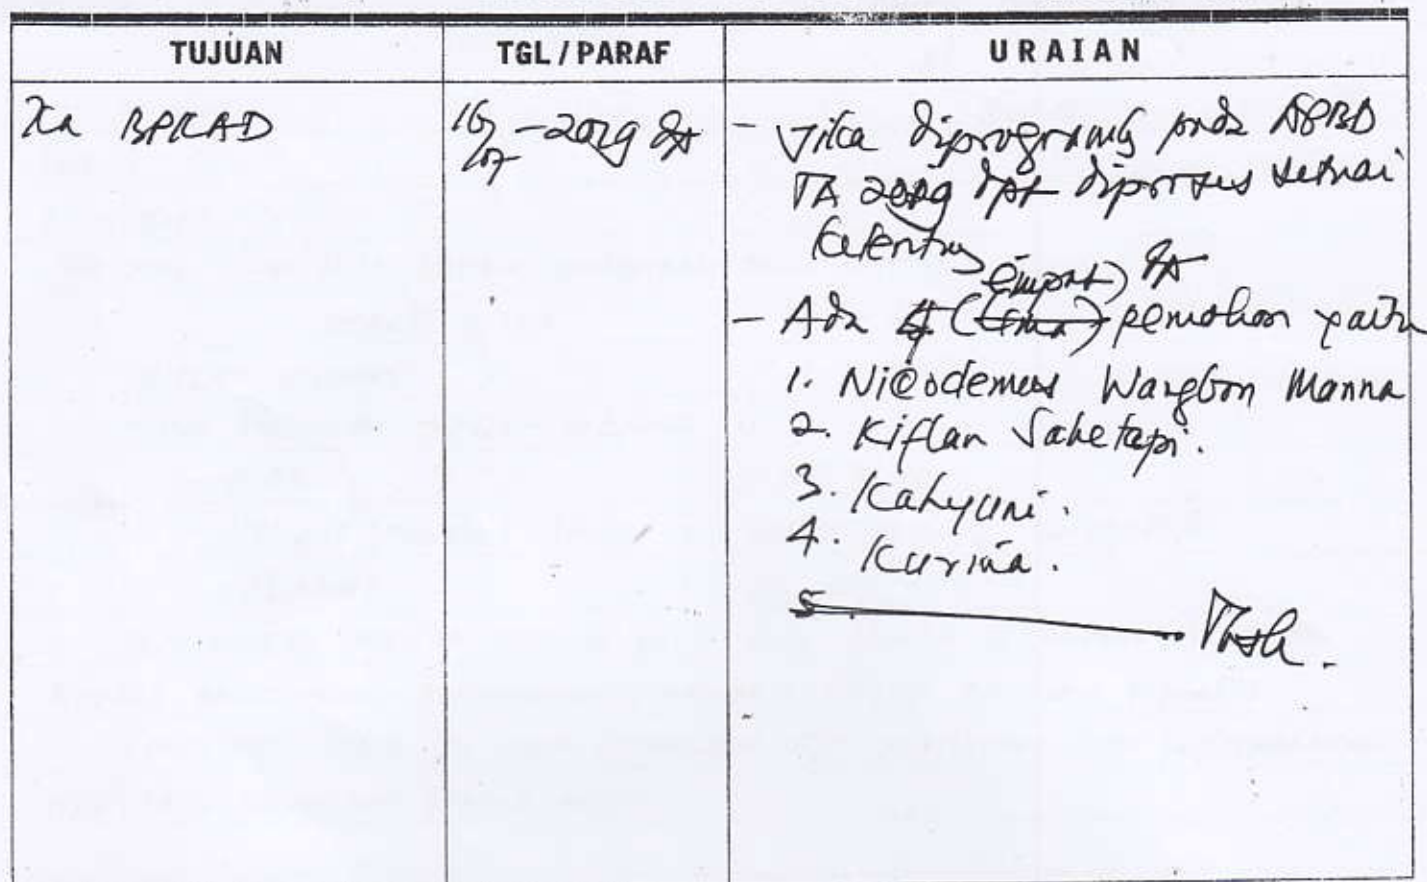 TUJUAN TGL / PARAF URAIAN
Ka BPKAD 16/07-2019 - Jika diprogramkan pada APBD
TA 2019 dpt diproses sesuai
ketentuan
(empat)
- Ada 4 (lima) pemohon yaitu
1. Nicodemus Wangbon Manna
2. Kiflan Sahetapi.
3. Kahyuni.
4. Kurina.
5.